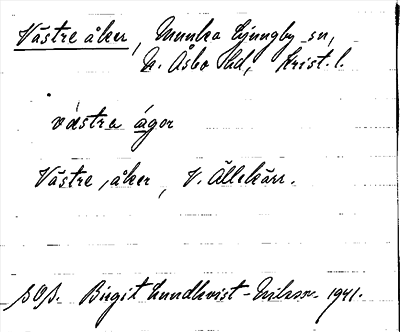 Västre åker, Munka Ljungby sn,
N. Åsbo hd, Krist. l.
västra ágor
Västre, åker, V. Ällekärr.
SOB. Birgit Lundkvist-Nilsson 1941.